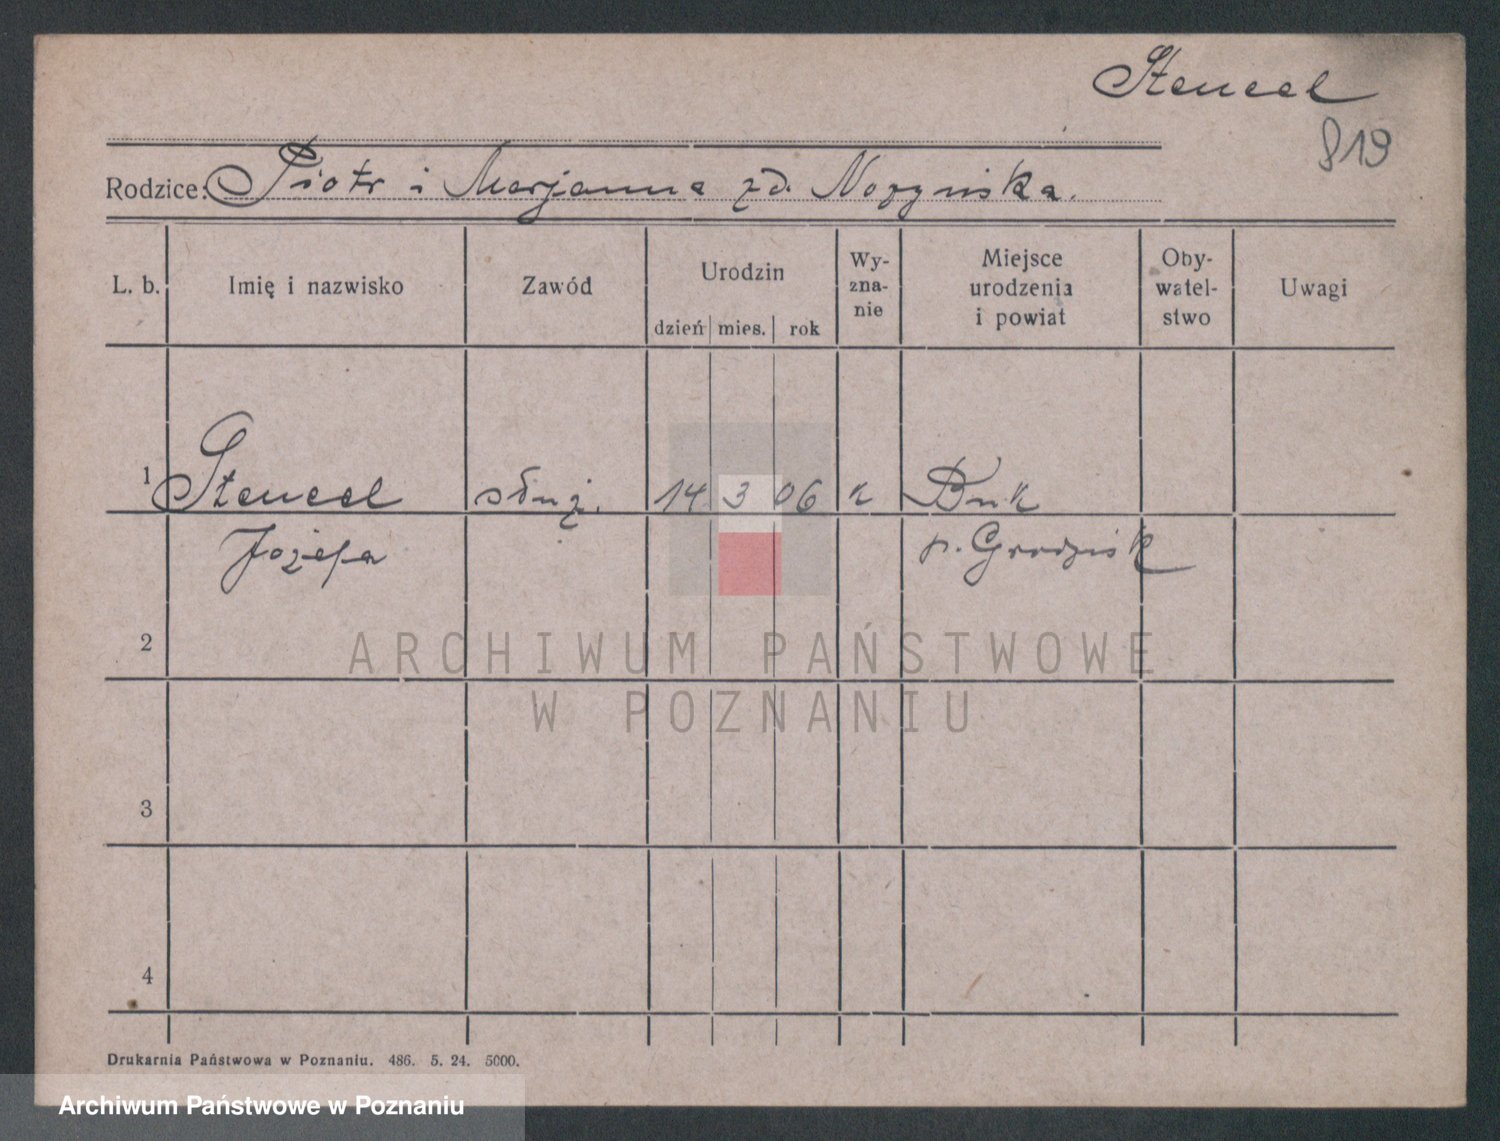 Stencel
819
Rodzice: Piotr i Marjanna zd. Nozynska.
L. b. Imię i nazwisko Zawód Urodzin dzień mies. rok Wyznanie Miejsce urodzenia i powiat Obywatelstwo Uwagi
1 Stencel służ. 14 3 06 k Buk
Józefa p. Grodzisk
2
ARCHIWUM PAŃSTWOWE
W POZNANIU
3
4
Drukarnia Państwowa w Poznaniu. 486. 5. 24. 5000.
Archiwum Państwowe w Poznaniu